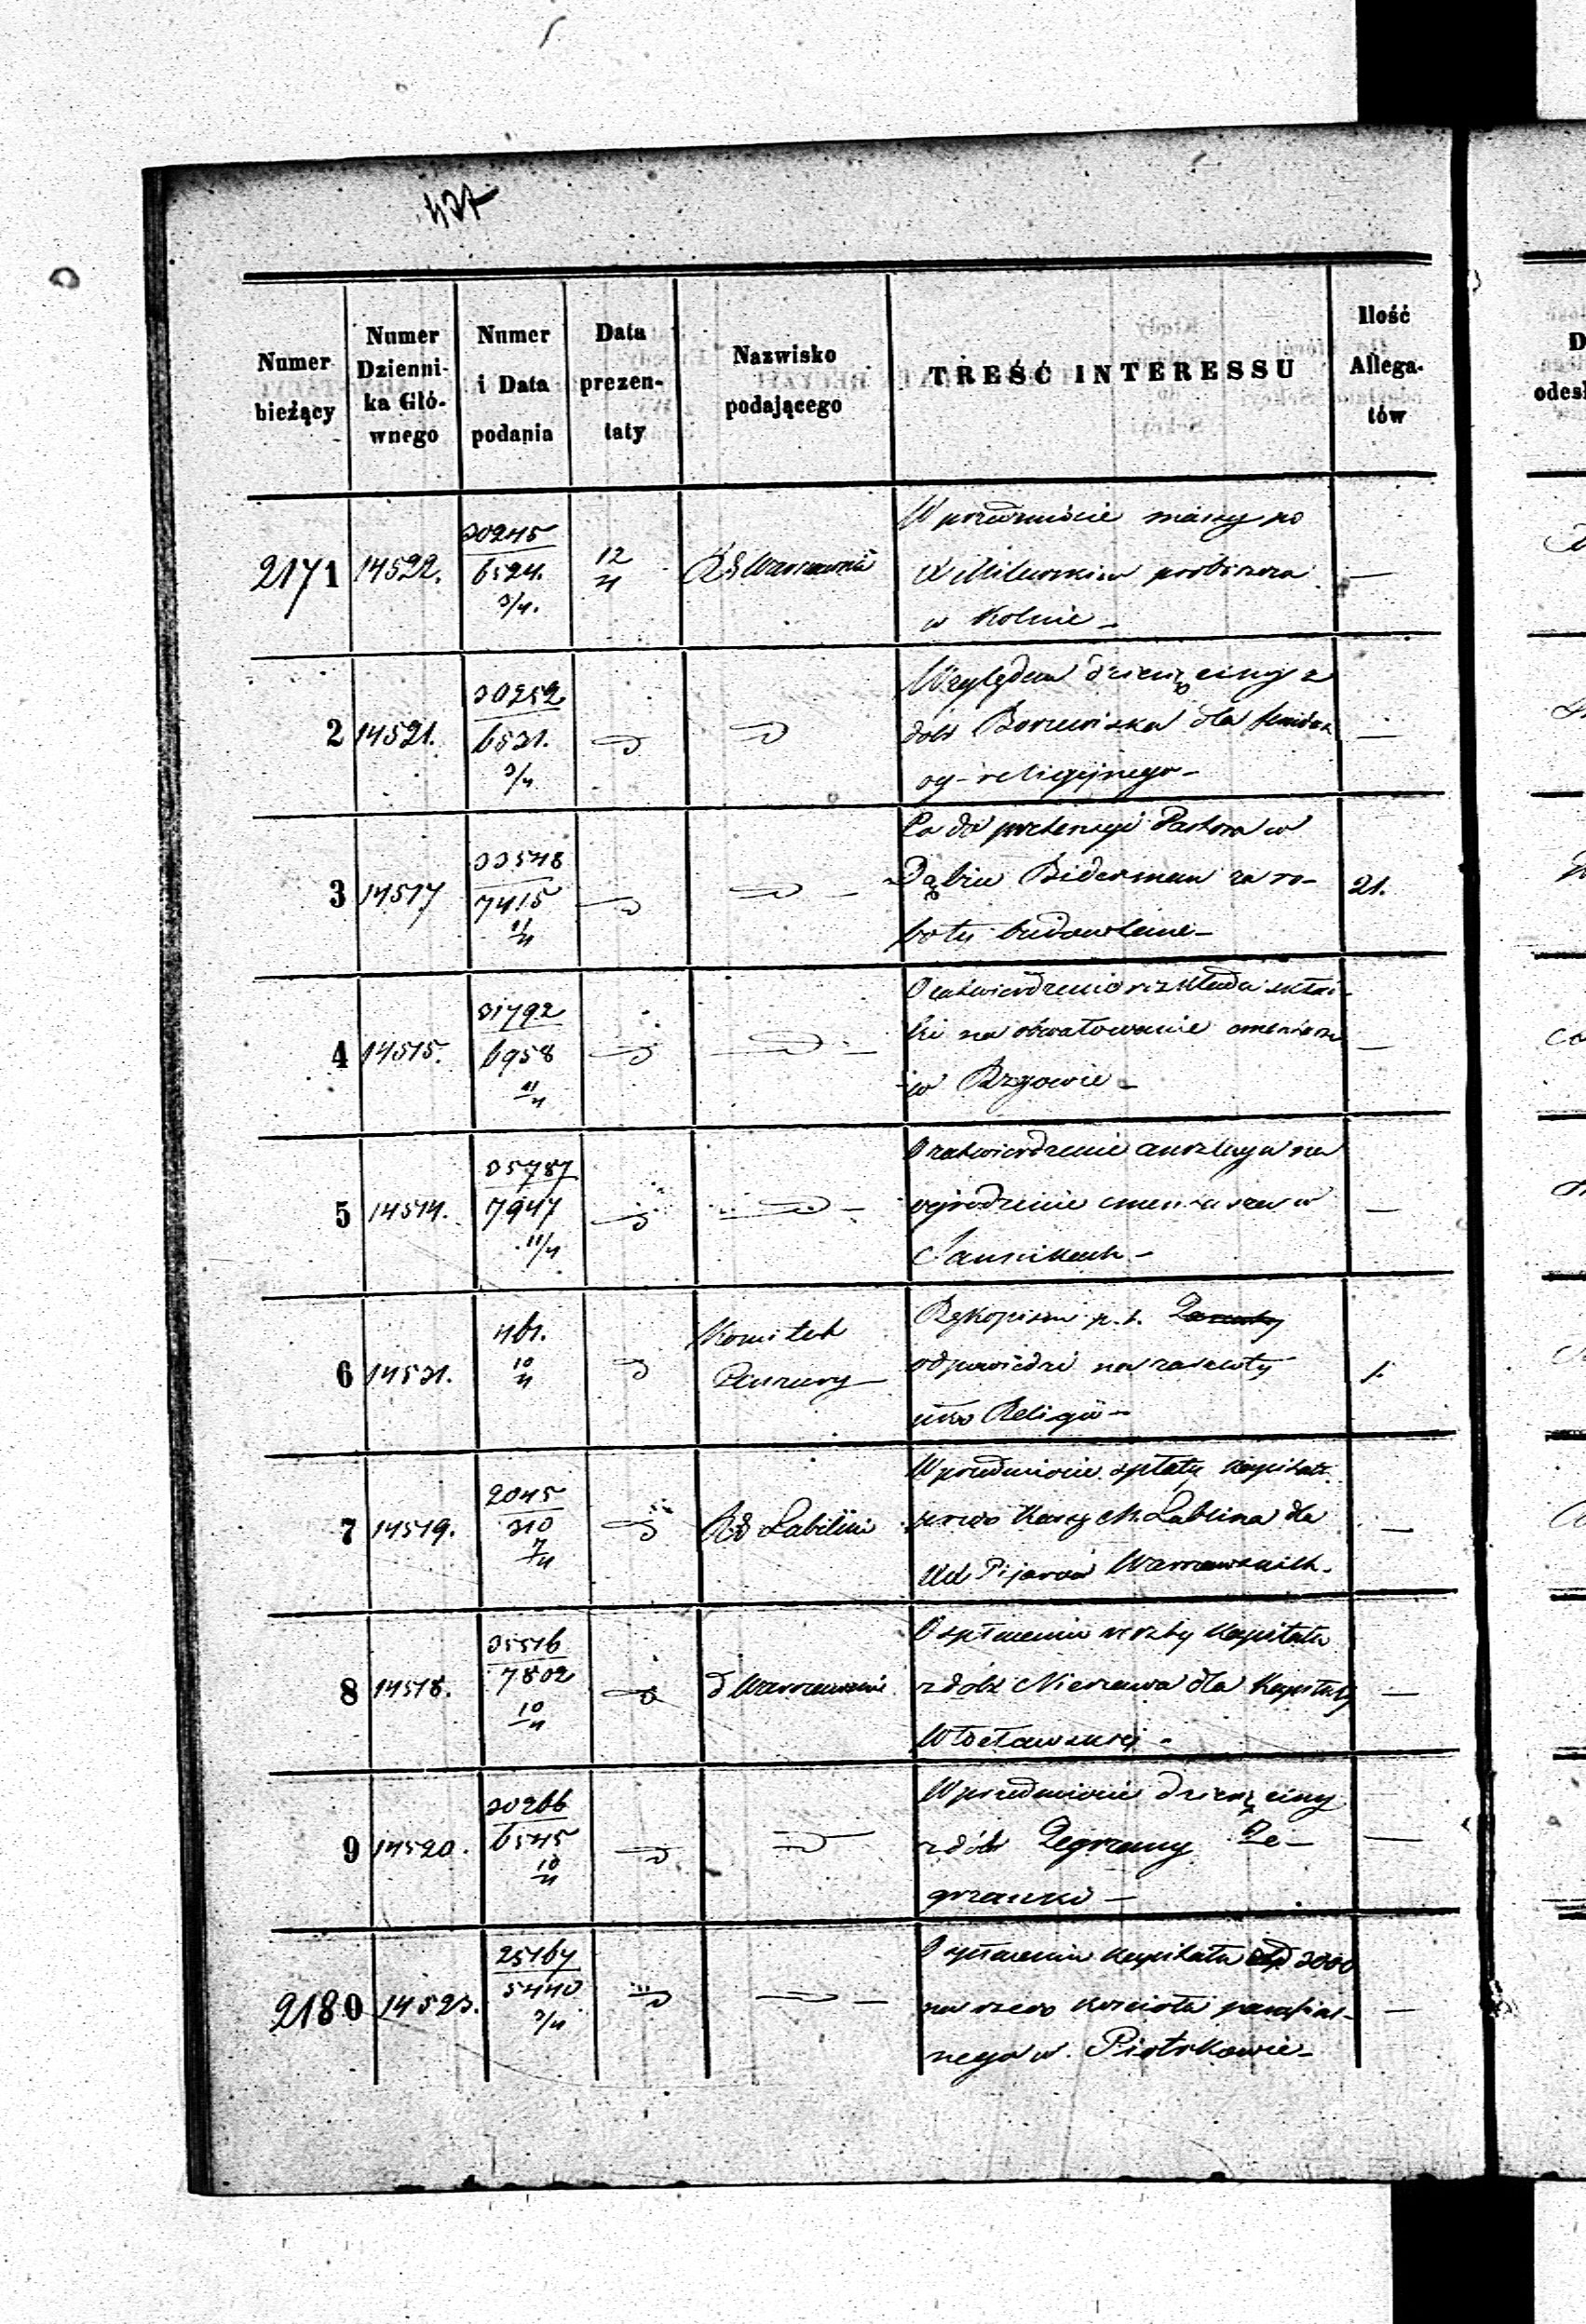 427
Numer bieżący
Numer Dzienni-ka Głó-wnego
Numer i Data podania
Data prezen-taty
Nazwisko podającego
TREŚĆ INTERESSU
Ilość Allega-tów
2171 14522. 30245 / 6524. 3/4. 12/4 R.G. Warszawski
W przedmiocie massy po
X Milewskim proboszczu
w Kolnie –
2 14521. 30252 / 6531. 3/4
Względem dziesięciny z
dóbr Borzewiska dla
religijnego –
3 14517 33548 / 7415 11/4
Co do pretensyi Pastora w
Dąbiu Biderman za ro-
boty budowlane – 21.
4 14515. 31792 / 6958 11/4
O zatwierdzenie rozkładu skład-
ki na obwałowanie cmentarza
w Rzgowie –
5 14514. 35787 / 7947 11/4
O zatwierdzenie anszlagu na
ogrodzenie cmentarza w
6 14531. 461. 10/4 Komitet
Cenzury
Rękopism p. t.
odpowiedzi na zarzuty
Religii – 1.
7 14519. 2045 / 310 7/4 R.G. Lubelski
W przedmiocie spłaty kapitału
Kassy M. Lublina dla
XX Pijarów Warszawskich.
8 14518. 35516 / 7802 10/4 G Warszawski
O spłacenie reszty kapitału
z dóbr Nieszawa dla Kapituły
Włocławskiej –
9 14520. 30266 / 6545 10/4
W przedmiocie dziesięciny
z dóbr Zegrzany Ze-
grzanki –
2180 14523. 25167 / 5440 3/4
O spłacenie kapitału złp 3000
na rzecz kościoła parafial-
nego w Piotrkowie –
D
odesł